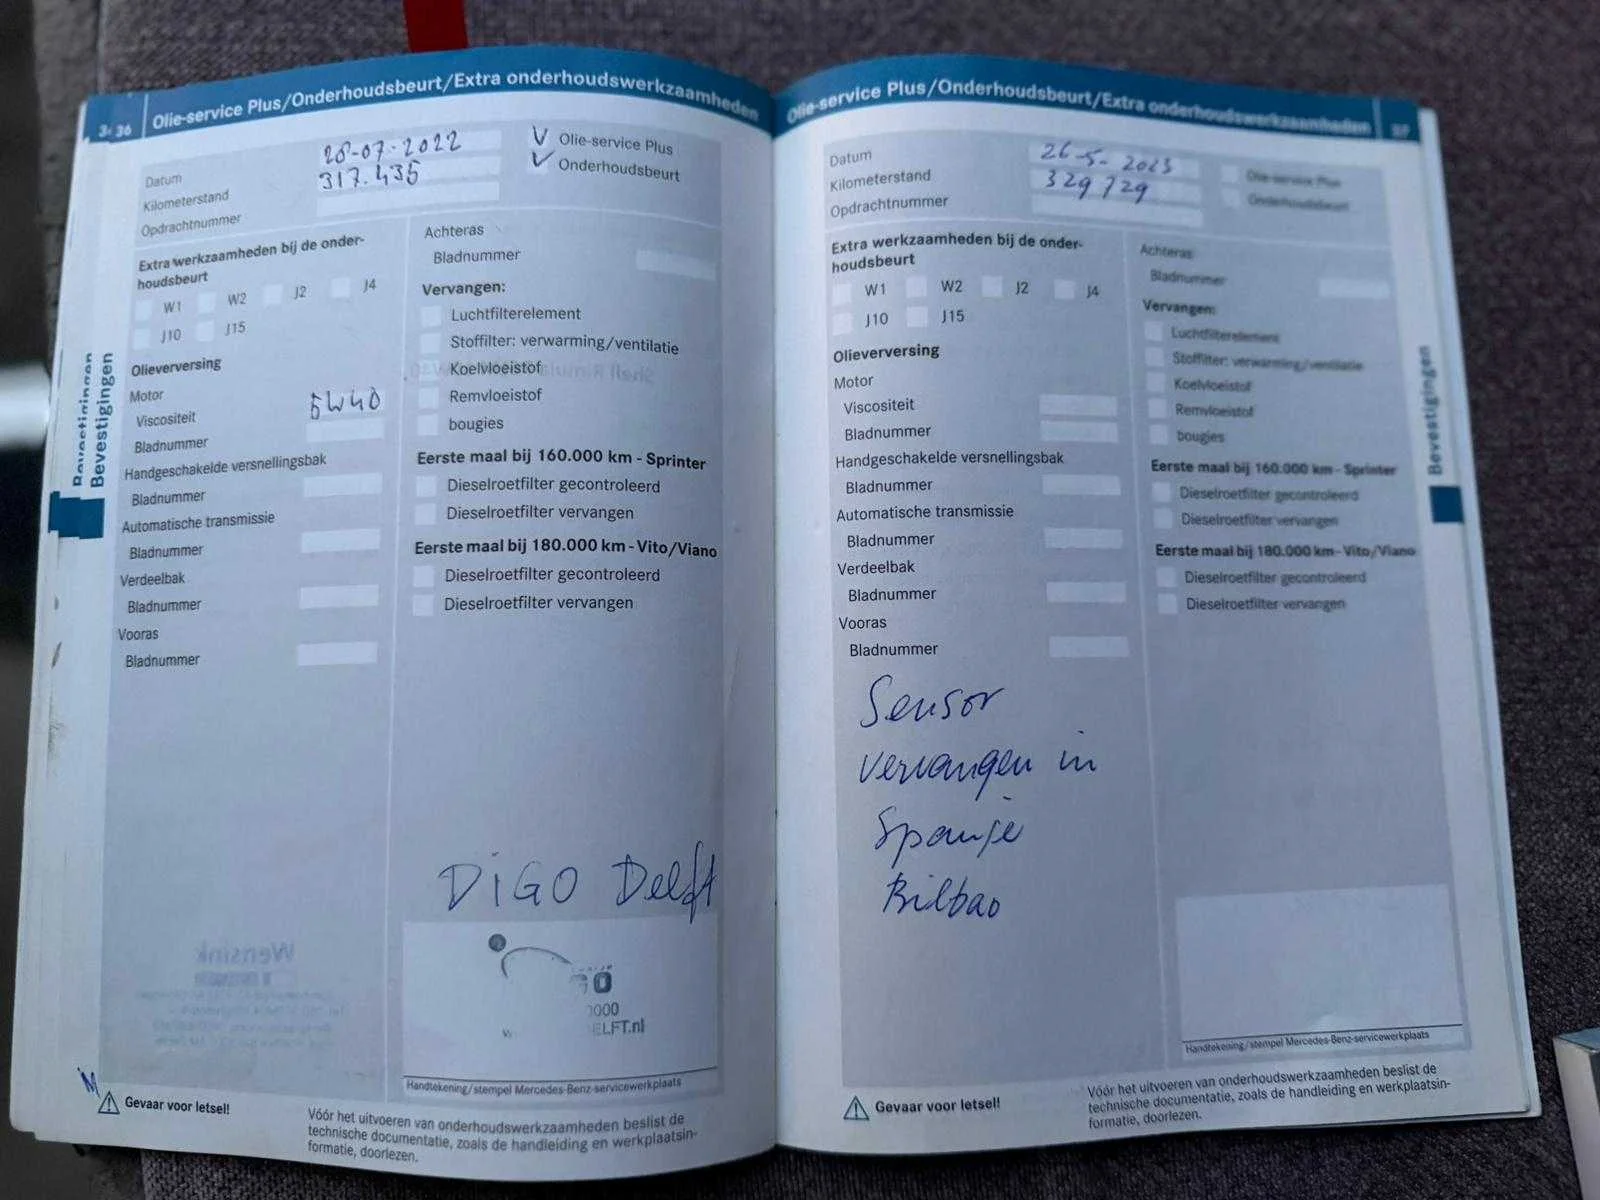 36
Olie-service Plus/Onderhoudsbeurt/Extra onderhoudswerkzaamheden
Datum
28-07-2022
Kilometerstand
317.435
Opdrachtnummer
V Olie-service Plus
V Onderhoudsbeurt
Extra werkzaamheden bij de onder-
houdsbeurt
W1 W2 J2 J4
J10 J15
Olieverversing
Motor
Viscositeit 5W40
Bladnummer
Handgeschakelde versnellingsbak
Bladnummer
Automatische transmissie
Bladnummer
Verdeelbak
Bladnummer
Vooras
Bladnummer
Achteras
Bladnummer
Vervangen:
Luchtfilterelement
Stoffilter: verwarming/ventilatie
Koelvloeistof
Remvloeistof
bougies
Eerste maal bij 160.000 km - Sprinter
Dieselroetfilter gecontroleerd
Dieselroetfilter vervangen
Eerste maal bij 180.000 km - Vito/Viano
Dieselroetfilter gecontroleerd
Dieselroetfilter vervangen
DiGO Delft
ELFT.nl
Handtekening/stempel Mercedes-Benz-servicewerkplaats
Gevaar voor letsel!
Vóór het uitvoeren van onderhoudswerkzaamheden beslist de
technische documentatie, zoals de handleiding en werkplaatsin-
formatie, doorlezen.
Bevestigingen
Olie-service Plus/Onderhoudsbeurt/Extra onderhoudswerkzaamheden
37
Datum
26-5-2023
Kilometerstand
329729
Opdrachtnummer
Olie-service Plus
Onderhoudsbeurt
Extra werkzaamheden bij de onder-
houdsbeurt
W1 W2 J2 J4
J10 J15
Olieverversing
Motor
Viscositeit
Bladnummer
Handgeschakelde versnellingsbak
Bladnummer
Automatische transmissie
Bladnummer
Verdeelbak
Bladnummer
Vooras
Bladnummer
Achteras
Bladnummer
Vervangen:
Luchtfilterelement
Stoffilter: verwarming/ventilatie
Koelvloeistof
Remvloeistof
bougies
Eerste maal bij 160.000 km - Sprinter
Dieselroetfilter gecontroleerd
Dieselroetfilter vervangen
Eerste maal bij 180.000 km - Vito/Viano
Dieselroetfilter gecontroleerd
Dieselroetfilter vervangen
Sensor
vervangen in
Spanje
Bilbao
Handtekening/stempel Mercedes-Benz-servicewerkplaats
Gevaar voor letsel!
Vóór het uitvoeren van onderhoudswerkzaamheden beslist de
technische documentatie, zoals de handleiding en werkplaatsin-
formatie, doorlezen.
Bevestigingen